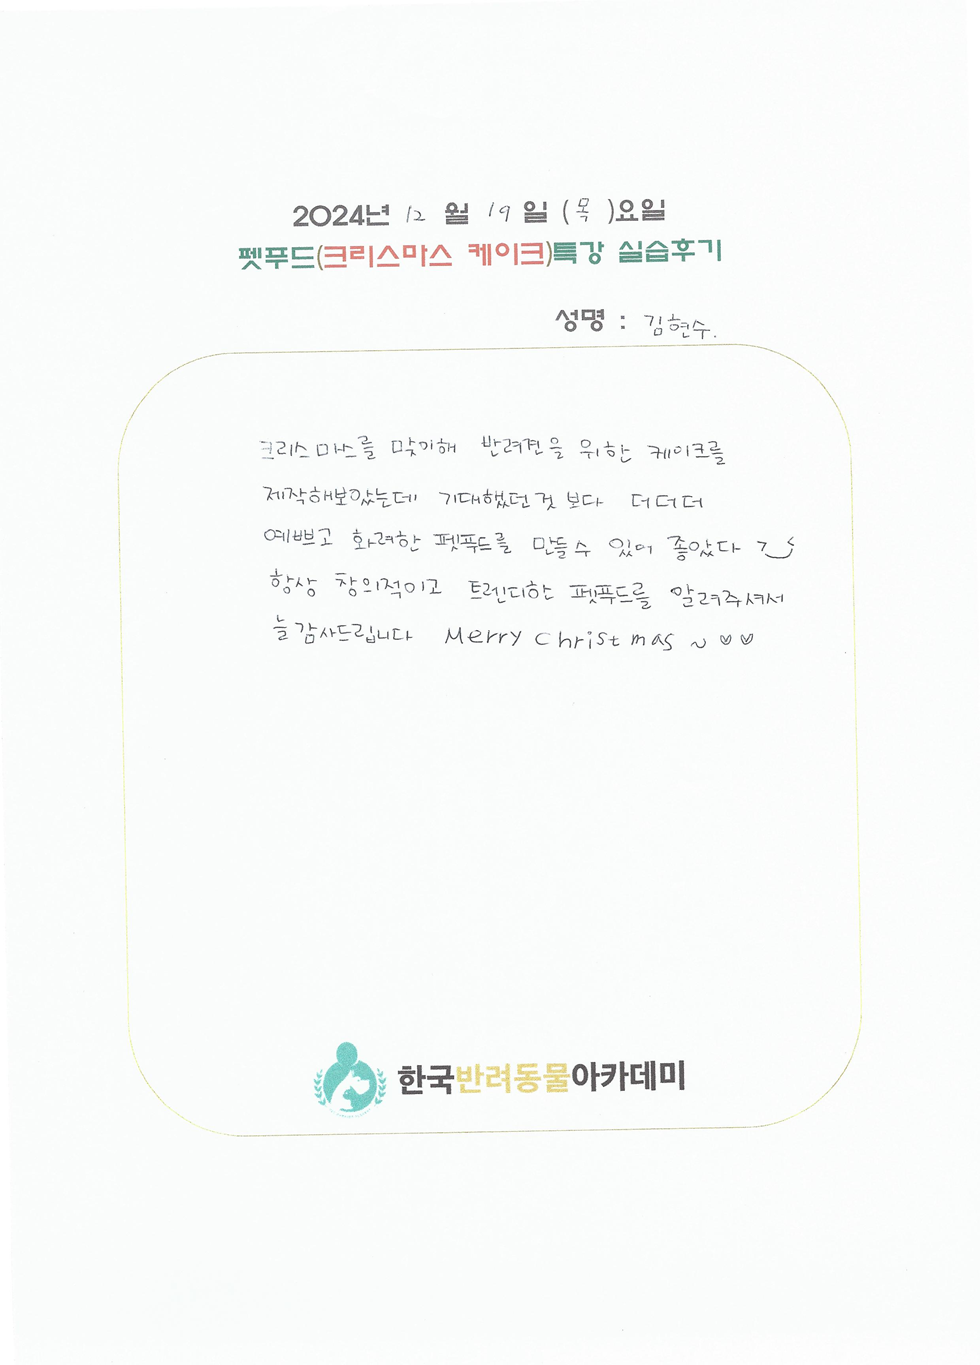 2024년 12 월 19 일 (목)요일
펫푸드(크리스마스 케이크)특강 실습후기
성명 : 김현수.
크리스마스를 맞이해 반려견을 위한 케이크를
제작해보았는데 기대했던것 보다 더더더
예쁘고 화려한 펫푸드를 만들수 있어 좋았다
항상 창의적이고 트렌디한 펫푸드를 알려주셔서
늘 감사드립니다 Merry Christmas ~ ♡♡
한국반려동물아카데미